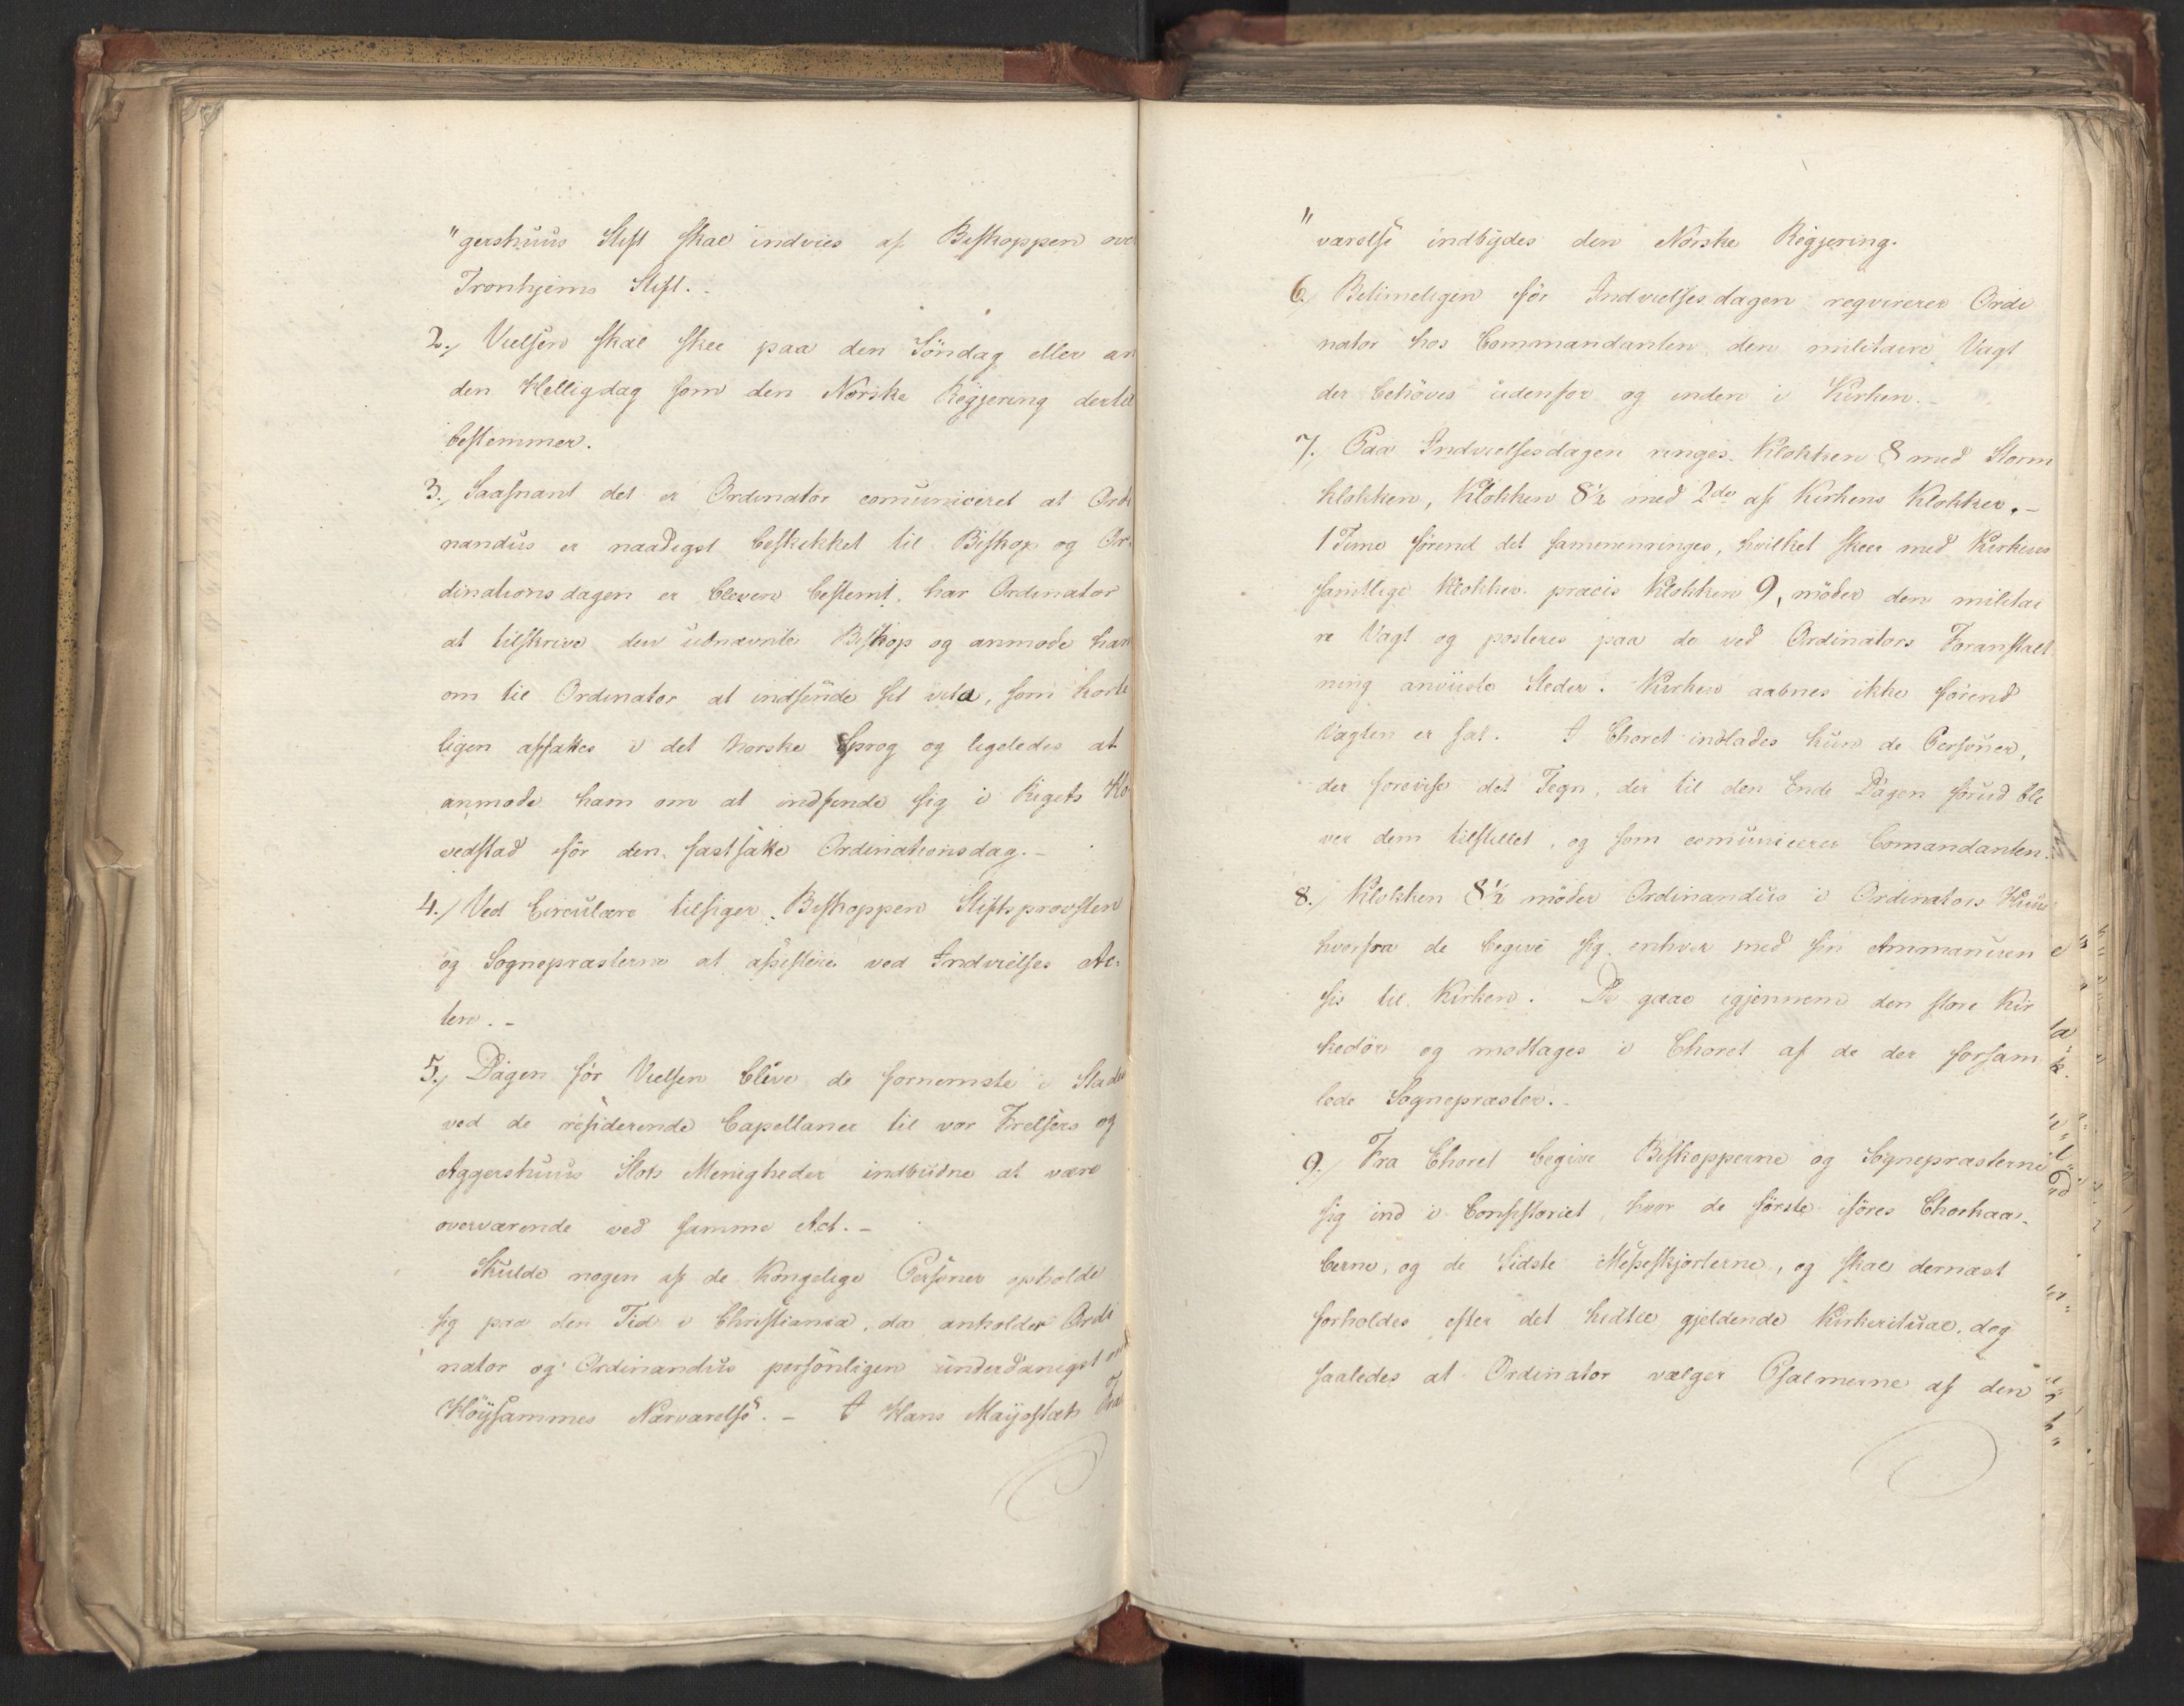 "gershuus Stift skal indvies af Biskoppen over
Tronhjems Stift.
2., Vielsen skal skee paa den Söndag eller an
den Helligdag som den Norske Regjering dertil
bestemmer.
3., Saasnart det er Ordinator comuniceret at Ordi
nandus er naadigst beskikket til Biskop og Or-
dinationsdagen er bleven bestemt, har Ordinator
at tilskrive den udnævnte Biskop og anmode ham
om til Ordinator at indsende sit vita, som korte
ligen affattes i det Norske Sprog og ligeledes at
anmode ham om at indfinde sig i Rigets Ho
vedstad för den fastsatte Ordinationsdag. -
4./ Ved Circulære tilsiger Biskoppen Stiftsprovsten
og Sognepræsterne at assistere ved Indvielses Ac-
ten. -
5., Dagen för Vielsen blive de fornemste i Staden
ved de residerende Capellaner til vor Frelsers og
Aggershuus Slots Menigheder indbudne at være
overværende ved samme Act. -
Skulde nogen af de Kongelige Personer opholde
sig paa den Tid i Christiania, da anholder Ordi
nator og Ordinandus personligen underdanigst om
Höysammes Nærværelse. - I Hans Mayestæts Fra
"værelse indbydes den Norske Regjering.
6., Betimeligen för Indvielsesdagen reqvirerer Ordi
nator hos Commandanten den militaire Vagt
der behöves udenfor og inden i Kirken. -
7., Paa Indvielsesdagen ringes Klokken 8 med Storm
klokken, Klokken 8½ med 2de af Kirkens Klokker. -
1 Time förend det sammenringes, hvilket skeer med Kirkens
samtlige Klokker præcis Klokken 9, möder den militai
re Vagt og posteres paa de ved Ordinators Foranstalt
ning anviiste Steder. Kirken aabnes ikke förend
Vagten er sat. I Choret indlades kun de Personer,
der forevise det Tegn, der til den Ende Dagen forud bli
ver dem tilstillet, og som comuniceres Comandanten.
8., Klokken 8½ möder Ordinandus i Ordinators Huus
hvorfra de begive sig enhver med sin Ammanuen
sis til Kirken. De gaae igjennem den store Kir
kedör og modtages i Choret af de der forsam
lede Sognepræster. -
9., Fra Choret begive Biskopperne og Sognepræsterne
sig ind i Consistoriet, hvor de förste iföres Chorkaa-
berne, og de Sidste Messeskjorterne, og skal dernæst
forholdes efter det hidtil gjeldende Kirkeritual, dog
saaledes at Ordinator vælger Psalmerne af den